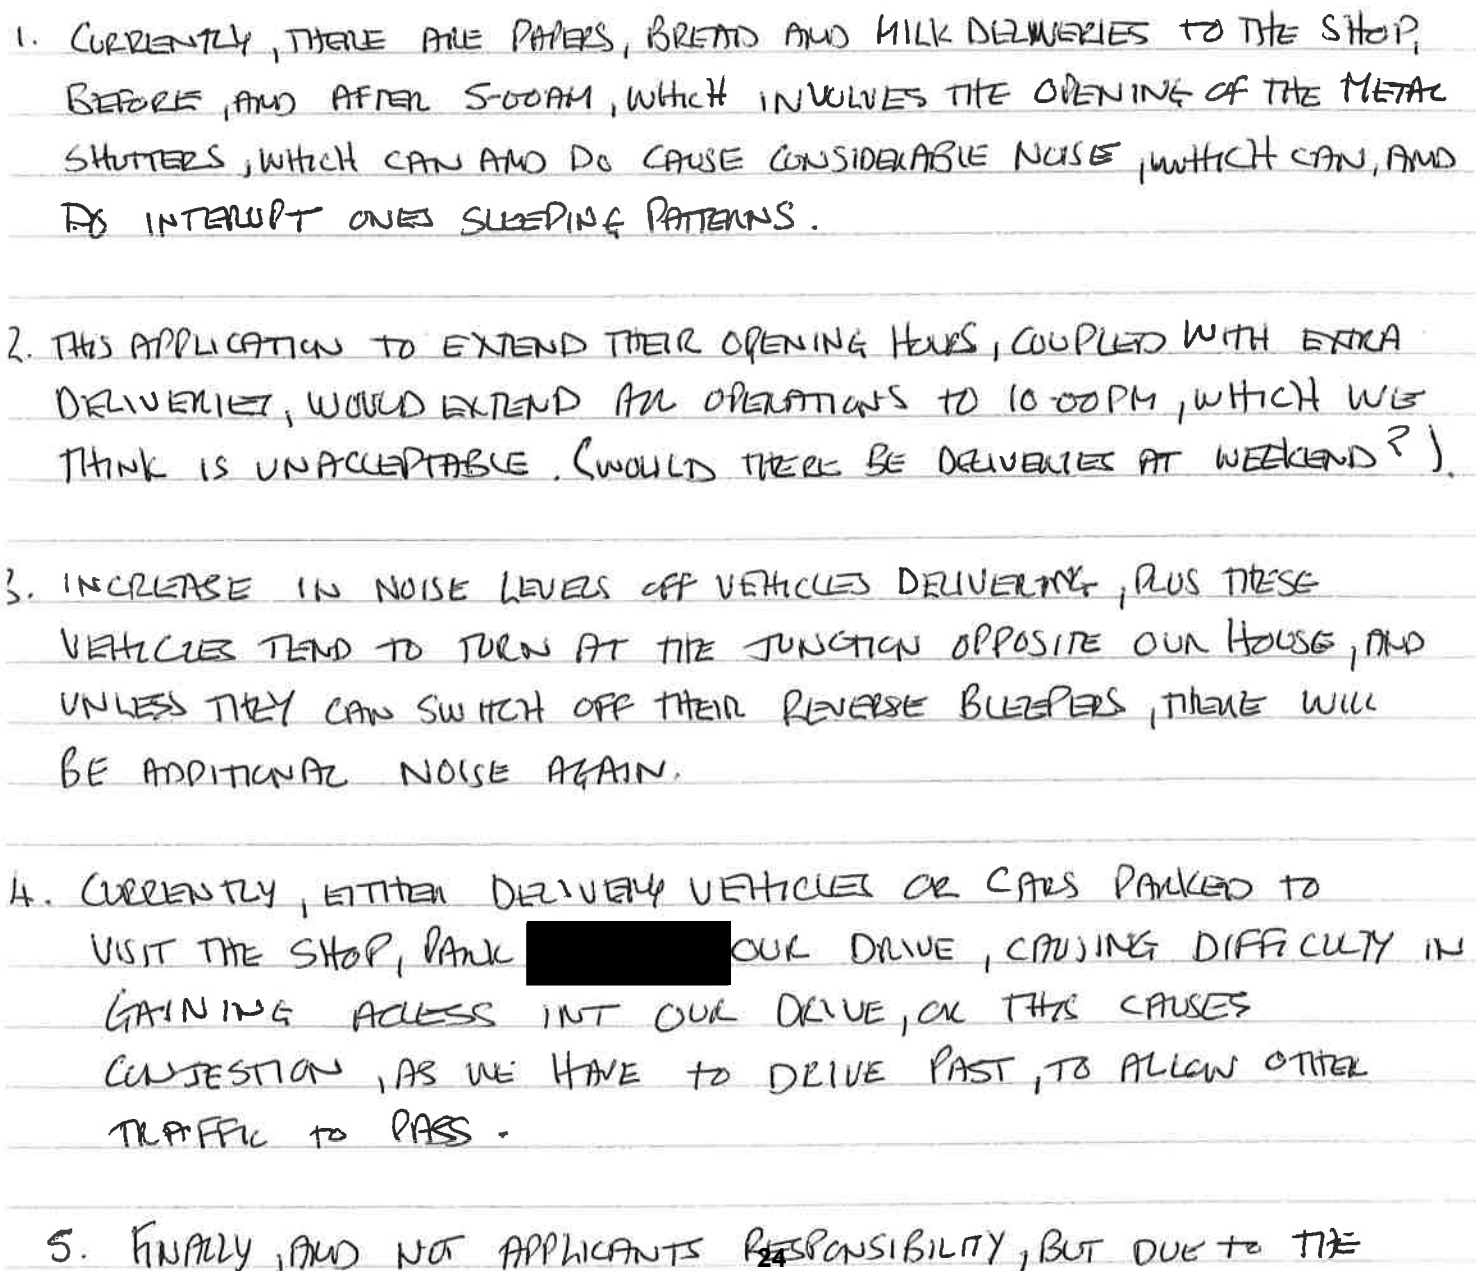 1. CURRENTLY, THERE ARE PAPERS, BREAD AND MILK DELIVERIES TO THE SHOP,
BEFORE, AND AFTER 5-00AM, WHICH INVOLVES THE OPENING OF THE METAL
SHUTTERS, WHICH CAN AND DO CAUSE CONSIDERABLE NOISE, WHICH CAN, AND
DO INTERUPT ONES SLEEPING PATTERNS.
2. THIS APPLICATION TO EXTEND THEIR OPENING HOURS, COUPLED WITH EXTRA
DELIVERIES, WOULD EXTEND ALL OPERATIONS TO 10-00PM, WHICH WE
THINK IS UNACCEPTABLE. (WOULD THERE BE DELIVERIES AT WEEKEND?).
3. INCREASE IN NOISE LEVELS OFF VEHICLES DELIVERING, PLUS THESE
VEHICLES TEND TO TURN AT THE JUNCTION OPPOSITE OUR HOUSE, AND
UNLESS THEY CAN SWITCH OFF THEIR REVERSE BLEEPERS, THERE WILL
BE ADDITIONAL NOISE AGAIN.
4. CURRENTLY, EITHER DELIVERY VEHICLES OR CARS PARKED TO
VISIT THE SHOP, PARK OUR DRIVE, CAUSING DIFFICULTY IN
GAINING ACCESS INT OUR DRIVE, OR THIS CAUSES
CONJESTION, AS WE HAVE TO DRIVE PAST, TO ALLOW OTHER
TRAFFIC TO PASS.
5. FINALLY, AND NOT APPLICANTS RESPONSIBILITY, BUT DUE TO THE
24